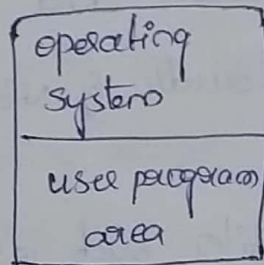 operating
system
user program
area